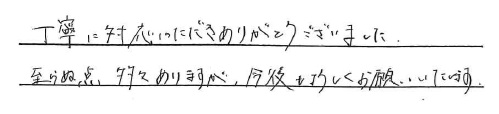 丁寧に対応いただきありがとうございました.
至らぬ点、多々ありますが、今後も宜しくお願いいたします.